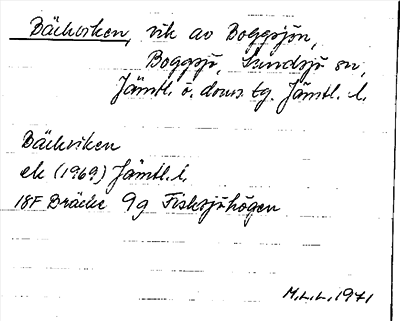 Bäckviken, vik av Boggsjön,
Boggsjö, Sundsjö sn,
Jämtl. ö. doms. tg. Jämtl. l.
Bäckviken
ek (1969) Jämtl. l.
18F Bräcke 9g Fisksjöhögen
M.L.L. 1971